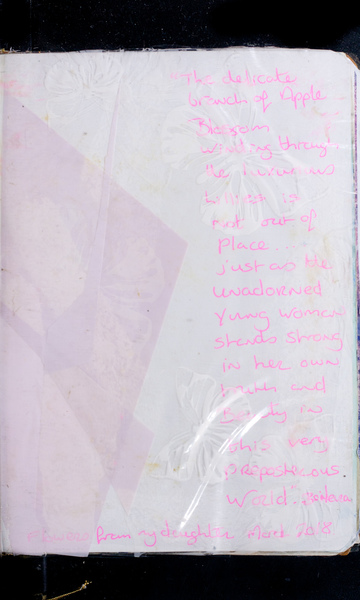 "The delicate
branch of Apple
Blossom
winding through
the
is
not out of
Place...
just as the
unadorned
young woman
stands strong
in her own
truth and
Beauty in
this very
Preposterous
World.
from my daughter March 2018